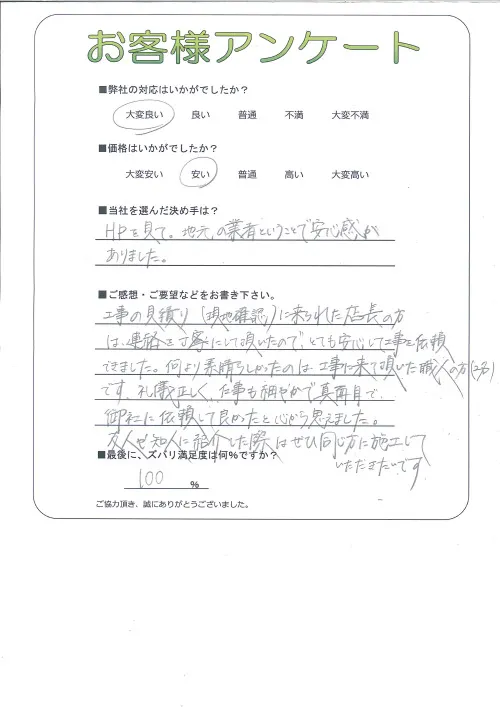 お客様アンケート
■弊社の対応はいかがでしたか?
大変良い 良い 普通 不満 大変不満
■価格はいかがでしたか?
大変安い 安い 普通 高い 大変高い
■当社を選んだ決め手は?
HPを見て。地元の業者ということで安心感が
ありました。
■ご感想・ご要望などをお書き下さい。
工事の見積り(現地確認)に来られた店長の方
は、連絡を丁寧にして頂いたので、とても安心して工事を依頼
できました。何より素晴らしかったのは、工事に来て頂いた職人の方(2名)
です。礼儀正しく、仕事も細やかで真面目で、
御社に依頼して良かったと心から思えました。
友人や知人に紹介した際はぜひ同じ方に施工して
いただきたいです
■最後に、ズバリ満足度は何%ですか?
100 %
ご協力頂き、誠にありがとうございました。